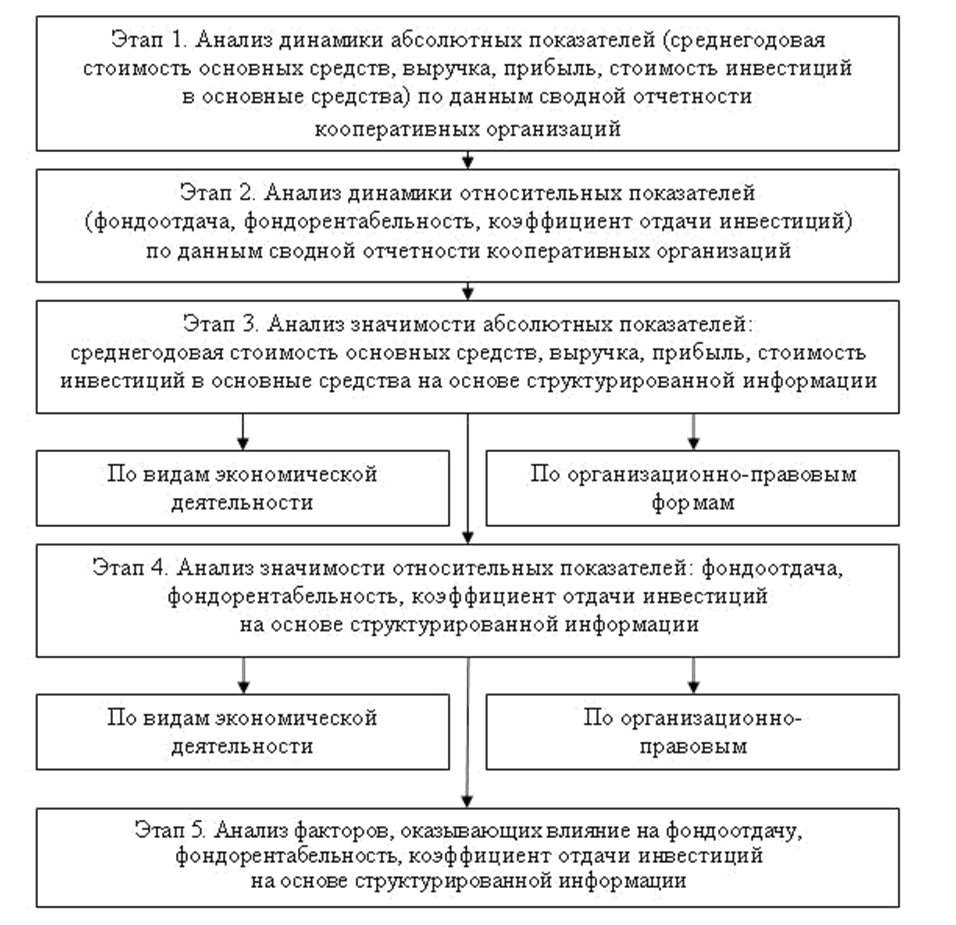 Этап 1. Анализ динамики абсолютных показателей (среднегодовая
стоимость основных средств, выручка, прибыль, стоимость инвестиций
в основные средства) по данным сводной отчетности
кооперативных организаций
Этап 2. Анализ динамики относительных показателей
(фондоотдача, фондорентабельность, коэффициент отдачи инвестиций)
по данным сводной отчетности кооперативных организаций
Этап 3. Анализ значимости абсолютных показателей:
среднегодовая стоимость основных средств, выручка, прибыль, стоимость
инвестиций в основные средства на основе структурированной информации
По видам экономической
деятельности
По организационно-правовым
формам
Этап 4. Анализ значимости относительных показателей: фондоотдача,
фондорентабельность, коэффициент отдачи инвестиций
на основе структурированной информации
По видам экономической
деятельности
По организационно-
правовым
Этап 5. Анализ факторов, оказывающих влияние на фондоотдачу,
фондорентабельность, коэффициент отдачи инвестиций
на основе структурированной информации